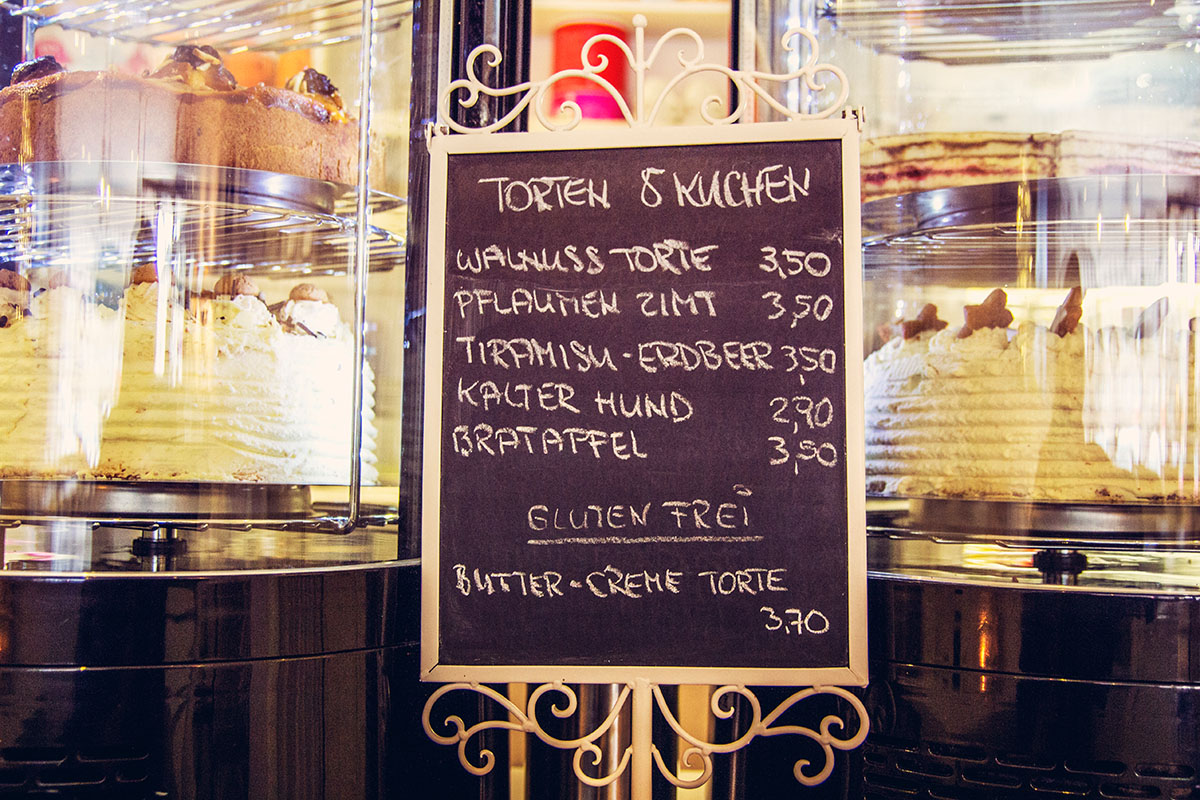 TORTEN & KUCHEN
WALNUSS TORTE 3,50
PFLAUMEN ZIMT 3,50
TIRAMISU-ERDBEER 3,50
KALTER HUND 2,90
BRATAPFEL 3,50
GLUTEN FREI
BUTTER-CREME TORTE
3,70